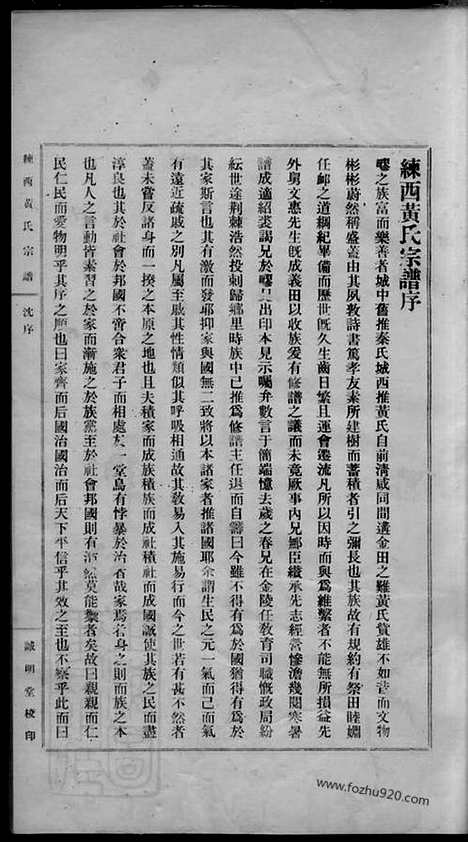 練西黃氏宗譜序
嚶之族富而樂善者城中舊推秦氏城西推黃氏自前清咸同間遘金田之難黃氏貲雄不如昔而文物
彬彬蔚然稱盛蓋由其夙敦詩書篤孝友素所建樹而蓄積者引之彌長也其族故有規約有祭田睦婣
任卹之道綱紀畢備而歷世旣久生齒日繁且運會遷流凡所以因時而與爲維繫者不能無所損益先
外舅文惠先生旣成義田以收族爰有修譜之議而未竟厥事內兄鄉臣繼承先志經營慘澹幾閱寒暑
譜成適紹裘謁兄於嚶兄出印本見示囑弁數言于簡端憶去歲之春兄在金陵任敎育司職慨政局紛
紜世途荆棘浩然投劾歸鄉里時族中已推爲修譜主任退而自籌曰今雖不得有爲於國猶得有爲於
其家斯言也其有激而發耶抑家與國無二致將以本諸家者推諸國耶余謂生民之元一氣而己而氣
有遠近疏戚之別凡屬至戚其性情類似其呼吸相通故其敎易入其施易行而今之世若有甚不然者
蓋未嘗反諸身而一揆之本原之地也且夫積家而成族積族而成社積社而成國誠使其族之民而盡
淳良也其於社會於邦國不啻合衆君子而相處於一堂烏有悖暴於治者哉故家爲若身之之則而族之本
也凡人之言動皆素習之於家而漸施之於族黨至於社會邦國則有沛然莫能禦者矣故曰親親而仁
民仁民而愛物明乎其序之順也曰家齊而后國治國治而后天下平信乎其效之主也不察乎此而曰
練西黃氏宗譜
沈序
誠明堂校印
www.fozhu920.com